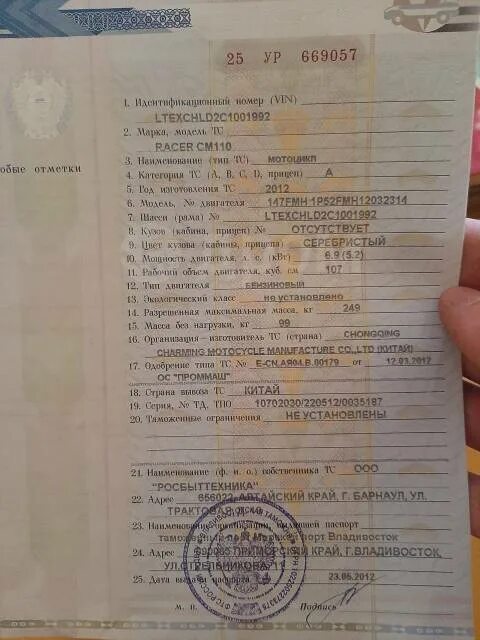 25 УР 669057
1. Идентификационный номер (VIN)
LTEXCHLD2C1001992
2. Марка, модель ТС
RACER CM110
обые отметки
3. Наименование (тип ТС) МОТОЦИКЛ
4. Категория ТС (А, В, С, D, прицеп) А
5. Год изготовления ТС 2012
6. Модель, № двигателя 147FMH 1P52FMH12032314
7. Шасси (рама) № LTEXCHLD2C1001992
8. Кузов (кабина, прицеп) № ОТСУТСТВУЕТ
9. Цвет кузова (кабины, прицепа) СЕРЕБРИСТЫЙ
10. Мощность двигателя, л. с. (кВт) 6.9 (5.2)
11. Рабочий объем двигателя, куб. см 107
12. Тип двигателя БЕНЗИНОВЫЙ
13. Экологический класс не установлено
14. Разрешенная максимальная масса, кг 249
15. Масса без нагрузки, кг 99
16. Организация-изготовитель ТС (страна) CHONGQING
CHARMING MOTOCYCLE MANUFACTURE CO.,LTD (КИТАЙ)
17. Одобрение типа ТС № E-CN.АЯ04.В.00179 от 12.03.2012
ОС "ПРОММАШ"
18. Страна вывоза ТС КИТАЙ
19. Серия, № ТД, ТПО 10702030/220512/0035187
20. Таможенные ограничения НЕ УСТАНОВЛЕНЫ
21. Наименование (ф. и. о.) собственника ТС ООО
"РОСБЫТТЕХНИКА"
22. Адрес 656022, АЛТАЙСКИЙ КРАЙ, Г. БАРНАУЛ, УЛ.
23. Наименование организации, выдавшей паспорт
Владивосток
24. Адрес 690065 ПРИМОРСКИЙ КРАЙ, Г.ВЛАДИВОСТОК,
УЛ.СТРЕЛЬНИКОВА, 11
25. Дата выдачи паспорта 23.05.2012
М. П. Подпись